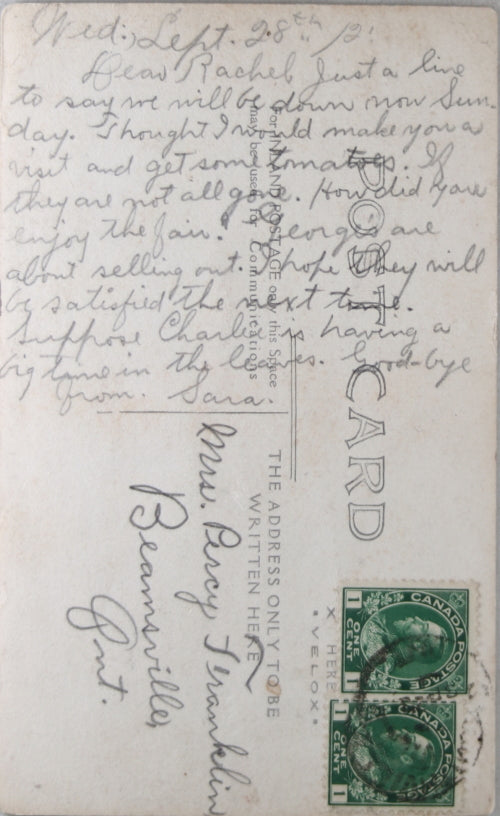 Wed., Sept. 28th
Dear Rachel Just a line
to say we will be down now Sun-
day. Thought I would make you a
visit and get some tomatoes. If
they are not all gone. How did you
enjoy the fair. Georgie are
about selling out. I hope they will
be satisfied the next time.
Suppose Charlie is having a
big time in the leaves. Good-bye
from. Sara.
For INLAND POSTAGE only this Space
may be used for Communications
POST CARD
THE ADDRESS ONLY TO BE
WRITTEN HERE
Mrs. Percy Franklin
Beamsville,
Ont.
HERE
VELOX
CANADA POSTAGE
1 ONE CENT 1
CANADA POSTAGE
1 ONE CENT 1